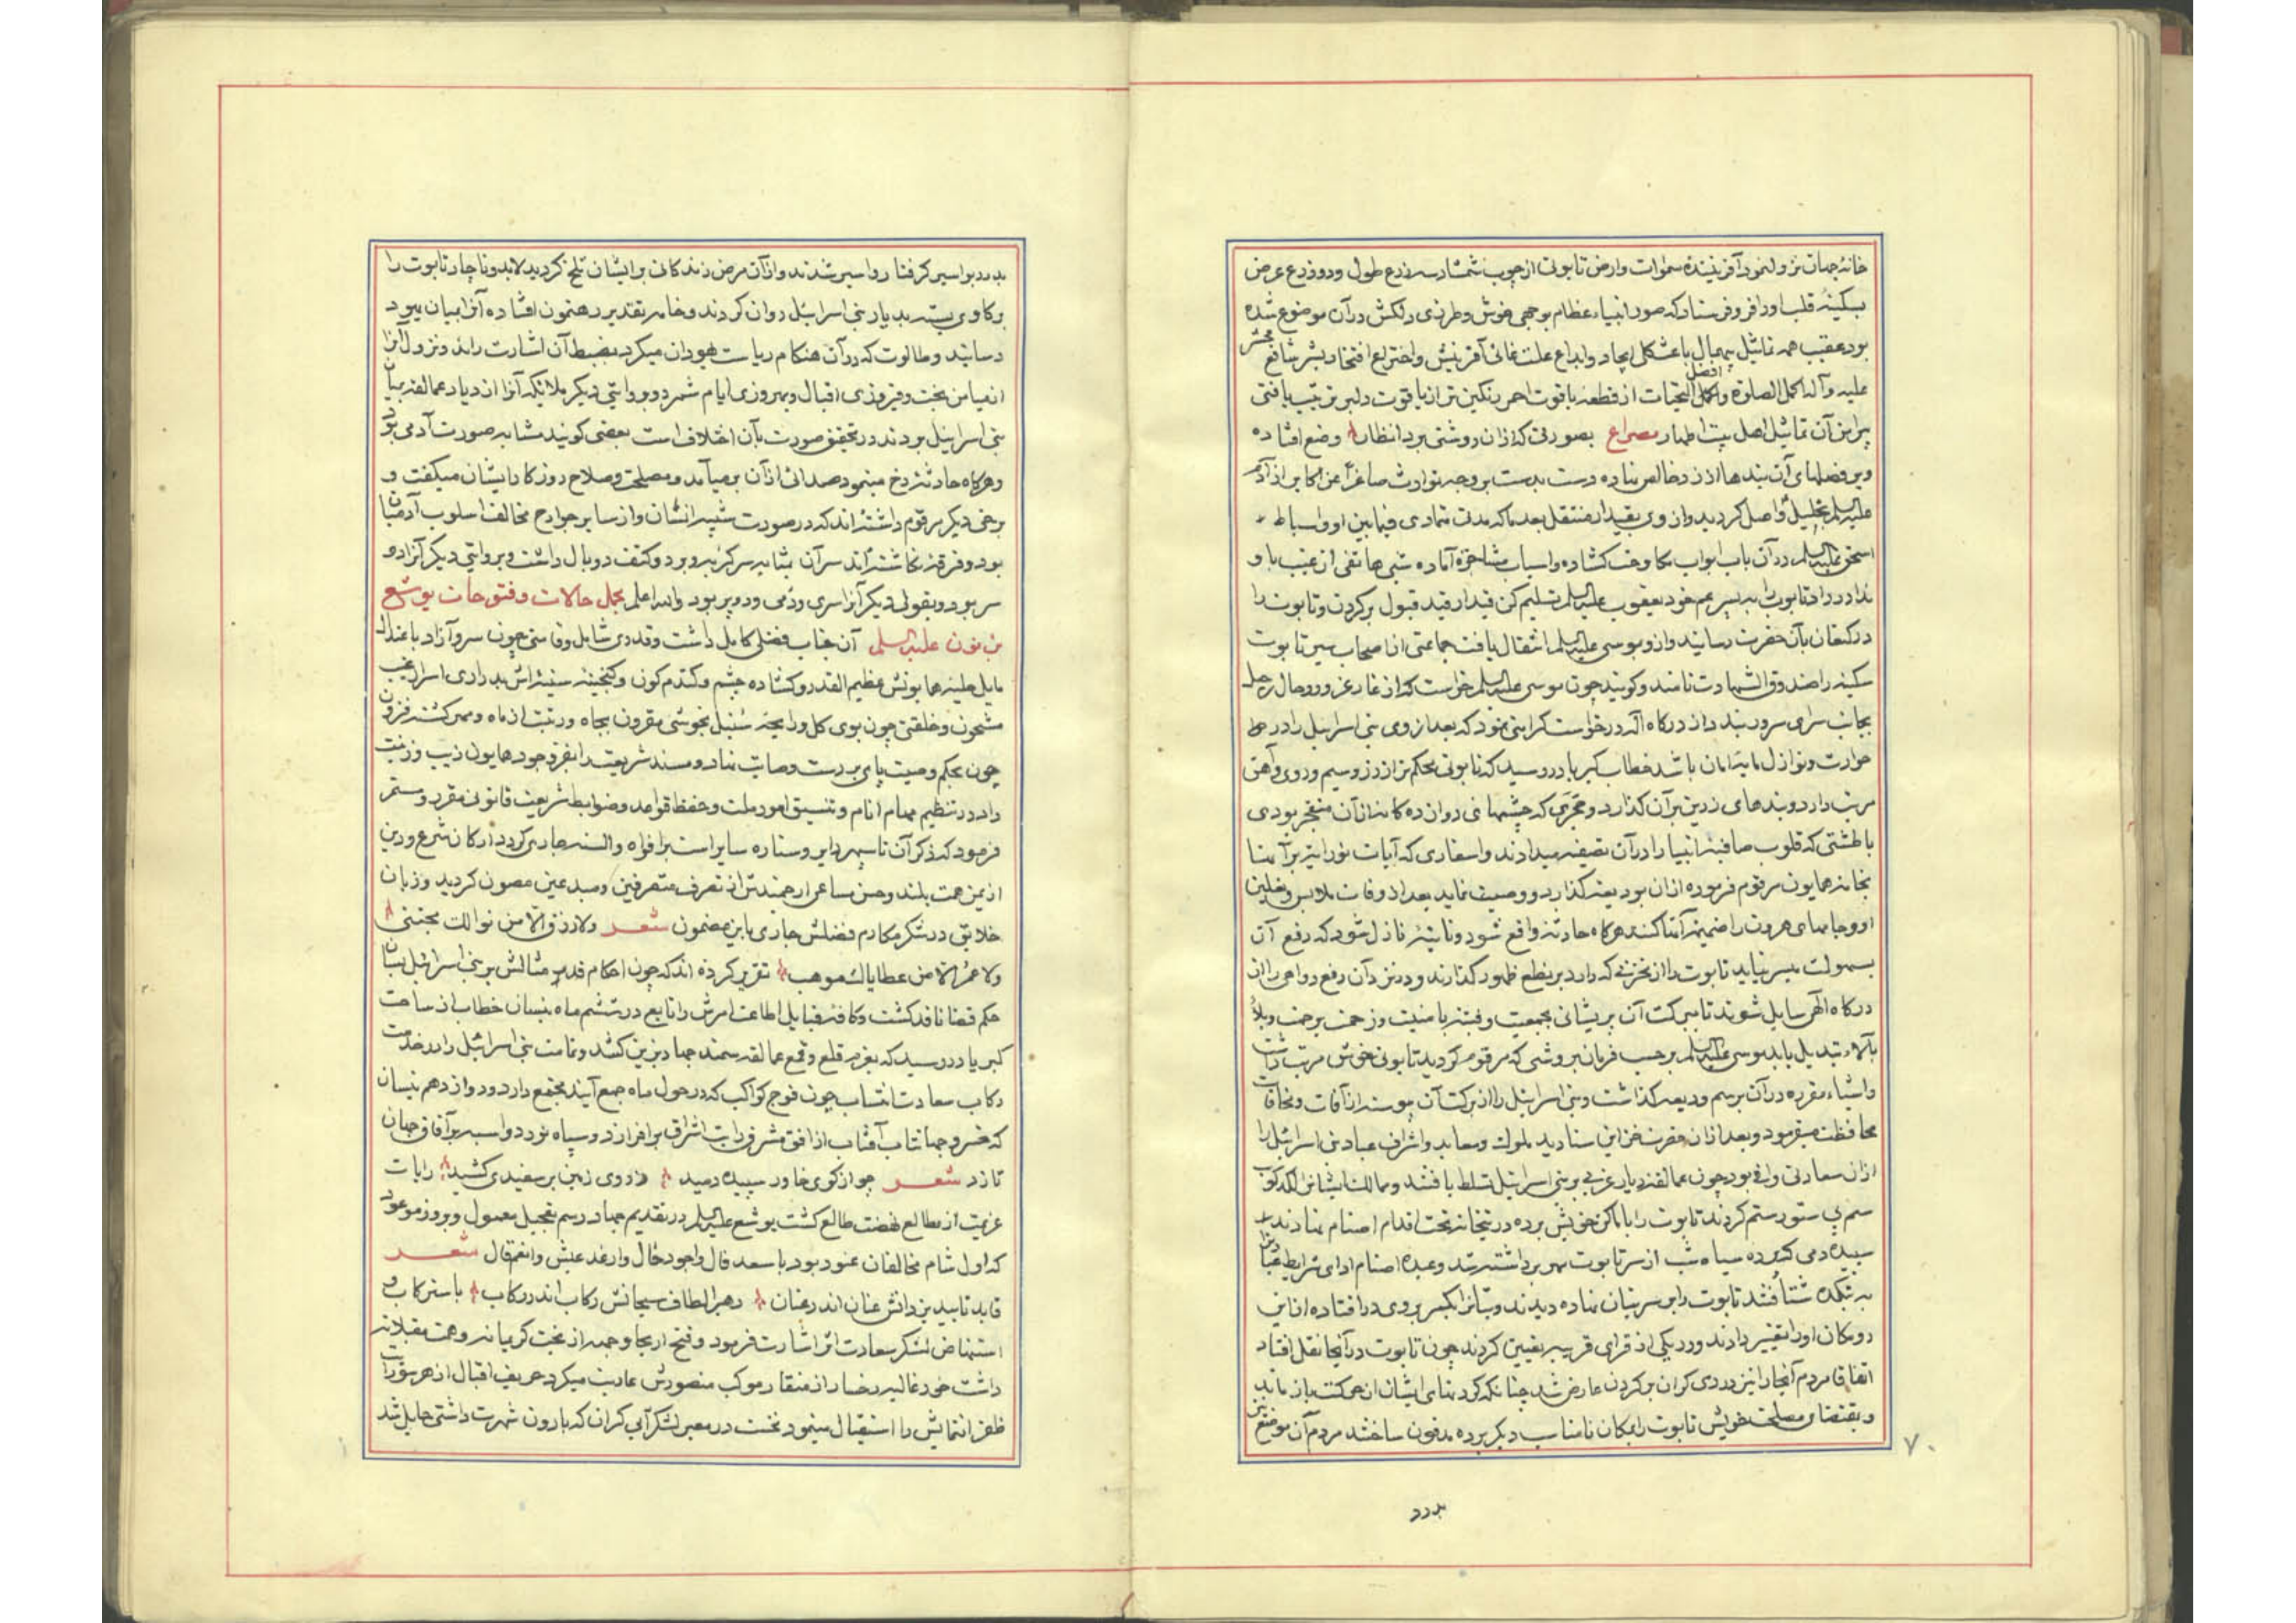 خانۀ جهات نزول نمود آفرینندۀ سموات وارض تابوتی از چوب شمشاد سه ذرع طول ودو ذرع عرض
بسکینۀ قلب او را فرو فرستاد که صور انبیاء عظام بوجهی خوش وطرزی دلکش در آن موضوع شده
بود عقب همه تماثیل بیمثال باعث کل ایجاد وابداع علت غائی آفرینش واختراع افتخار بشر شافع محشر
علیه وآله اکمل الصلوة وافضل التحیات از قطعۀ یاقوت احمر رنگین تر از یاقوت دلبر ترتیب یافتی
پیرامن آن تماثیل اهل بیت اطهار مصراع بصورتی که از آن روشنی برد انظار وضع افتاده
وبر فصلهای آن بندها از زر خالص نهاده دست بدست بر وجه توارث صاغراً عن اکابر از آدم
علیه السلم بخلیل واصل گردید واز وی بقیدار منتقل بعد ما که مدت متمادی فیما بین او واسباط
اسحق علیه السلم در آن باب ابواب مکاوحت گشاده واسباب مشاجره آماده شبی هاتفی از غیب باو
ندا در داد تابوت را به پسر عم خود یعقوب علیه السلم تسلیم کن قیدار قید قبول بر گردن وتابوت را
در کنعان بآن حضرت رسانید واز او بموسی علیه السلم انتقال یافت جماعتی از اصحاب سیر تابوت
سکینه را صندوق الشهادت نامند وگویند چون موسی علیه السلم خواست که از غار غرور وحال رحل
بجانب سرای سرور بندد از درگاه اله درخواست کرامتی نمود که بعد از وی بنی اسرائیل را در
حوارت ونوازل مایۀ امان باشد خطاب کبریا در رسید که تابوتی محکم تر از زر وسیم وروی وآهن
مرتب دارد وبندهای زرین بر آن گذارد وحجری که چشمهای دوازده گانه از آن منفجر بودی
با طشتی که قلوب صافیۀ انبیا را در آن تصفیه میدادند واسفاری که آیات تورات بر آنها
بخامۀ همایون مرقوم فرموده از آن بودیعه گذارد ووصیت نماید بعد از وفات ملابس ونعلین
او وجامهای هرون را ضمیمۀ آنها کنند هرگاه حادثه واقع شود ونایبۀ نازل شود که رفع آن
بسهولت میسر نیاید تابوت را از مخزنی که دارد بر نطع ظهور گذارند ودر نزد آن رفع دواهی را از
درگاه الهی سایل شوند تا ببرکت آن پریشانی بجمعیت وفتنه بامنیت وزحمت برحمت وبلا
بآلاء تبدیل یابد موسی علیه السلم بر حسب فرمان بروشی که مرقوم گردید تابوتی خوش مرتب داشت
واشیاء مقرره در آن برسم ودیعه گذاشت وبنی اسرائیل را از برکت آن پیوسته از آفات ومخافات
محافظت میفرمود وبعد از آن حضرت خزاین سنادید ملوک ومعابد واشراف عباد بنی اسرائیل را
از آن سعادتی وافی بود چون عمالقه دیار غربی بر بنی اسرائیل تسلط یافتند وممالک ایشان را لگدکوب
سم بی ستور ستم کردند تابوت را باماکن خویش برده در بتخانه تحت اقدام اصنام نهادند
سپیده دمی که پرده سیاه شب از سر تابوت سپهر برداشته شد وعبدۀ اصنام ادای شرایط عبادت را
به بتکده شتافتند تابوت را بر سر بتان نهاده دیدند وبتان را یکسر بروی در افتاده از این
رو مکان او را تغییر دادند ودر یکی از قرای قریبه تعیین کردند چون تابوت در آنجا نقل افتاد
اتفاقا مردم آنجا را نیز دردی گران بر گردن عارض شد چنانکه گردنهای ایشان از حرکت باز ماند
وبمقتضای مصلحت خویش تابوت را بمکان نامناسب دیگر برده مدفون ساختند مردم آن موضع نیز
بدرد
۷۰
بدرد بواسیر گرفتار واسیر شدند واز آن مرض زندگانی بر ایشان تلخ گردید لابد وناچار تابوت را
بر گاوی بسته بدیار بنی اسرائیل روان کردند وخامۀ تقدیر رهنمون افتاده آنرا بمیان یهود
رسانید وطالوت که در آن هنگام ریاست یهودان میکرد بضبط آن اشارت راند ونزول آنرا
از میامن بخت وفیروزی اقبال وبهروزی ایام شمرد وبروایتی دیگر ملائکه آنرا از دیار عمالقه بمیان
بنی اسرائیل بردند در تحقیق صورت بآن اختلاف است بعضی گویند مشابه صورت آدمی بود
وهرگاه حادثه رخ مینمود صدائی از آن بر میآمد ومصلحت وصلاح روزگار ایشان میگفت و
برخی دیگر مرقوم داشته اند که در صورت شبیه انسان واز سایر جوارح مخالف اسلوب آدمیان
بود وفرقه نگاشته اند سر آن بمثابه سر گربه وبر دو کتف دو بال داشت وبروایتی دیگر آنرا دو
سر بود وبقولی دیگر آنرا سری ودمی ودو پر بود والله اعلم مجمل حالات وفتوحات یوشع
بن نون علیه السلم آن جناب فضلی کامل داشت وقددی شامل وقامتی چون سرو آزاد باعتدال
مایل حلیه همایونش عظیم القدر وگشاده چشم وگندم گون وگنجینۀ سینه اش بدراری اسرار غیب
مشحون وخلقتی چون بوی گل ورایحۀ سنبل بخوشی مقرون بجاه ورتبت از ماه ومهر گشته فزون
چون بحکم وصیت پای بر دست وصایت نهاد ومسند شریعت را بفر وجود همایون زیب وزینت
داد در تنظیم مهام انام وتنسیق امور ملت وحفظ قواعد وضوابط شریعت قانونی مقرر ومستمر
فرمود که ذکر آن تا سپهر دایر وستاره سایر است بر افواه والسنه جاری گردد ارکان شرع ودین
از یمن همت بلند وحسن مساعی ارجمندش از تصرف متصرفین ومبدعین مصون گردید وزبان
خلایق در شکر مکارم فضلش جاری باین مضمون شعر ولا رزق الا من نوالک یجتنی
ولا عمر الا من عطایاک موهب تقریر کرده اند که چون احکام قدر مثالش بر بنی اسرائیل بسان
حکم قضا نافذ گشت وکافه قبایل اطاعت امرش را تابع در ششم ماه نیسان خطاب از ساحت
کبریا در رسید که بعزم قلع وقمع عمالقه سمند جهاد بزین کشد وتمامت بنی اسرائیل را در خدمت
رکاب سعادت انتساب چون فوج کواکب که در حول ماه جمع آیند مجتمع دارد ودر دوازدهم نیسان
که خسرو جهانتاب آفتاب از افق مشرق رایت اشراق بر افرازد وسپاه نور دو اسبه بر آفاق جهان
تازد شعر چو از کوی خاور سپیده دمید ز روی زمین بر سفیدی کشید رایات
عزیمت از مطالع نهضت طالع گشت یوشع علیه السلم در تقدیم جهاد رسم تعجیل معمول وبروز موعود
که اول شام مخالفان عنود بود با سعد فال واجود حال وارغد عیش وانعم قال شعر
قاید تایید یزدانش عنان اندر عنان رهبر الطاف سبحانش رکاب اندر رکاب باستر کاب و
استنهاض لشکر سعادت اثر اشارت فرمود وفتح اریحا وجهه از بخت کریمانه وهمت مقبلانه
داشت خود غالیه رخسار از منقار موکب منصورش عاریت میکرد حریف اقبال از هر سو رایت
ظفر انتمایش را استقبال مینمود نخست در معبر لشگر آبی گران که بارون شهرت داشتی حایل شد